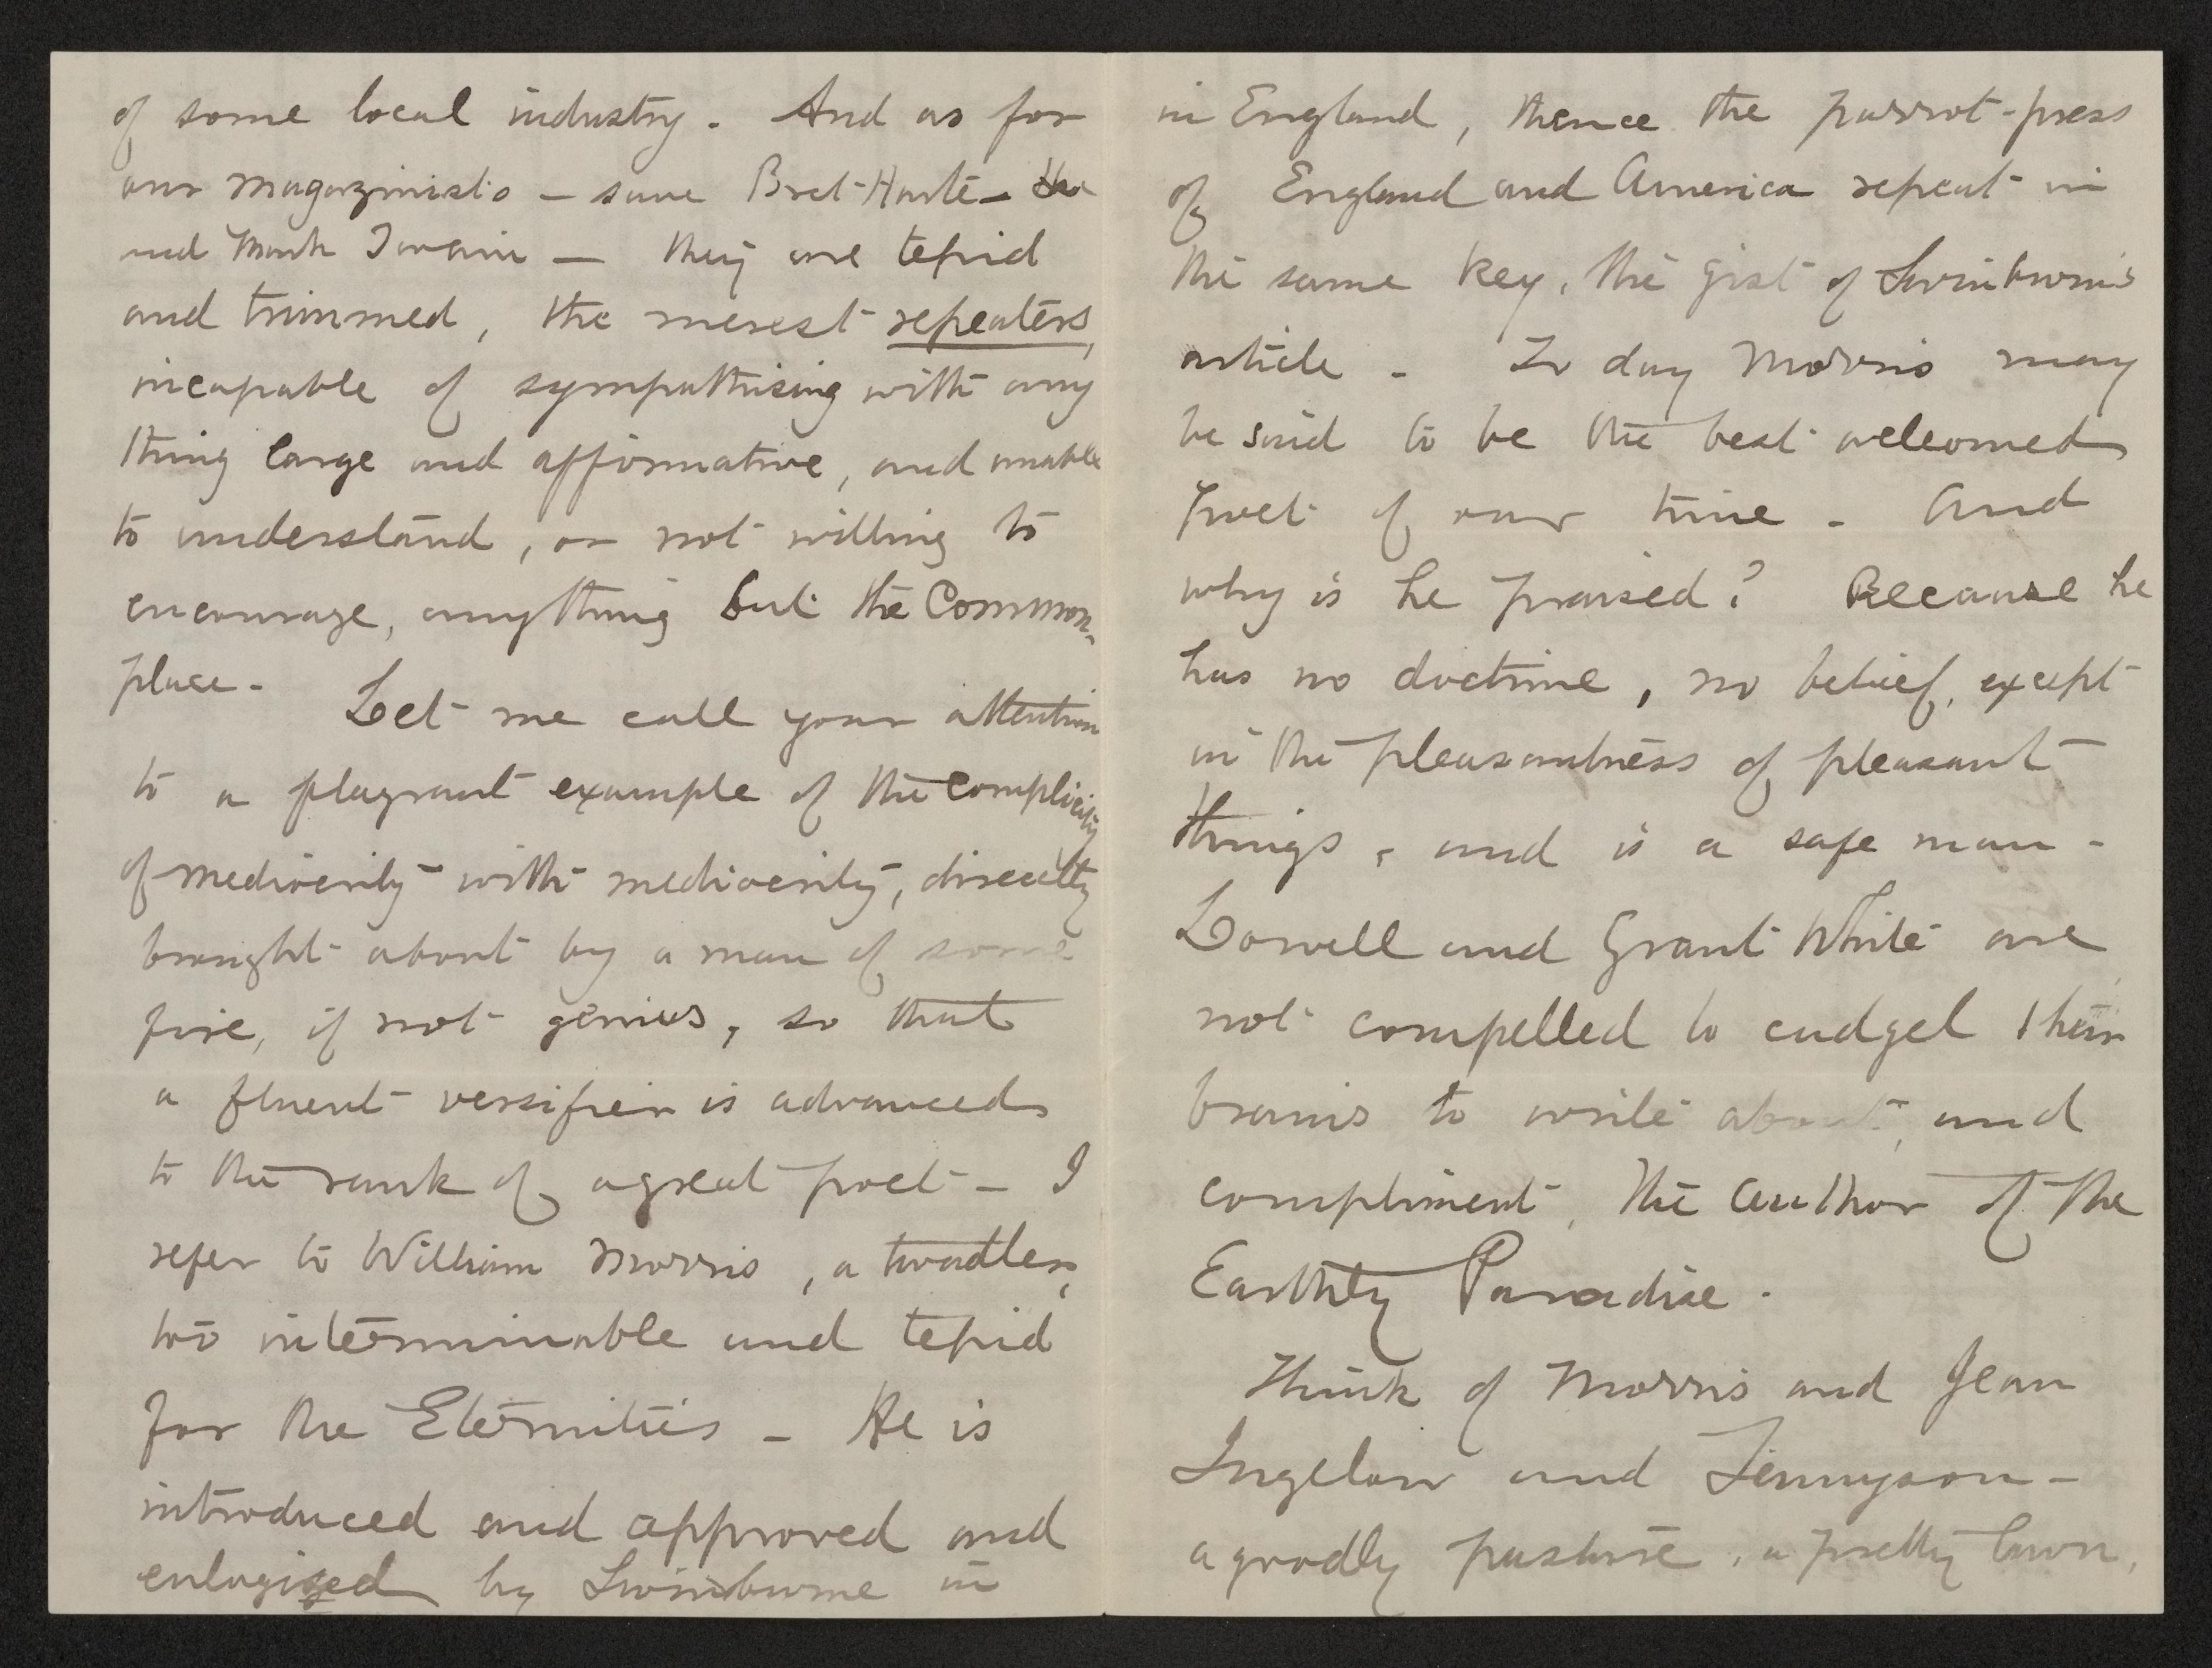 of some local industry. And as for
our magazinists — save Bret-Harte —
and Mark Twain — they are tepid
and trimmed, the merest repeaters,
incapable of sympathising with any
thing large and affirmative, and unable
to understand, or not willing to
encourage, anything but the Common-
place. Let me call your attention
to a flagrant example of the complicity
of mediocrity with mediocrity, directly
brought about by a man of some
fire, if not genius, so that
a fluent versifier is advanced
to the rank of a great poet — I
refer to William Morris, a twadler,
too interminable and tepid
for the Eternities — He is
introduced and approved and
eulogized by Swinburne in
in England, thence the parrot-press
of England and America repeat in
the same key, the gist of Swinburne's
article — To day Morris may
be said to be the best welcomed
poet of our time — And
why is he praised? Because he
has no doctrine, no belief, except
in the pleasantness of pleasant
things, and is a safe man —
Lowell and Grant White are
not compelled to cudgel their
brains to write about, and
compliment, the author of the
Earthly Paradise.
Think of Morris and Jean
Ingelow and Tennyson —
a goodly pasture, a pretty lawn,